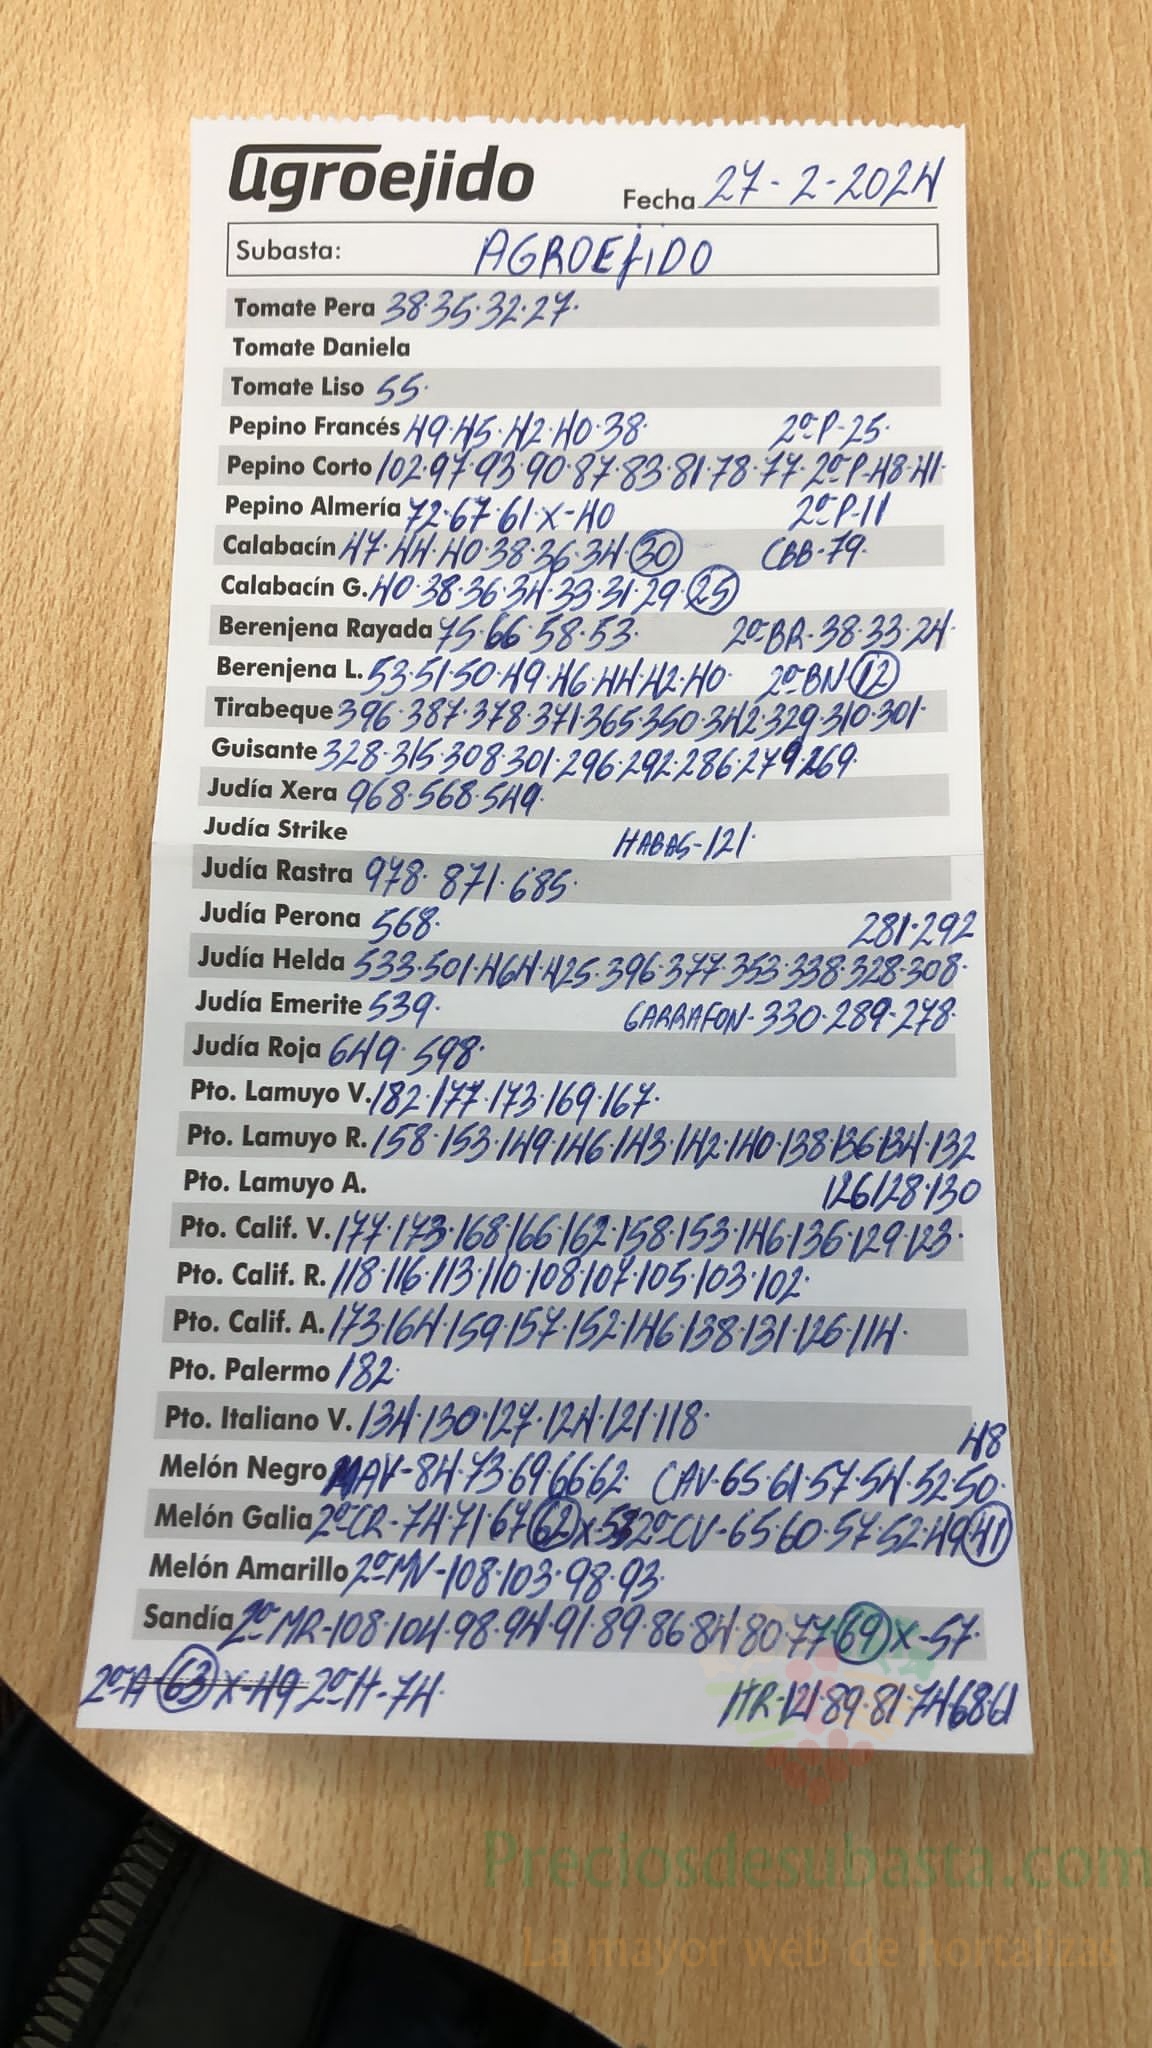 agroejido
Fecha 27-2-2024
Subasta: AGROEJIDO
Tomate Pera 38·35·32·27·
Tomate Daniela
Tomate Liso 55·
Pepino Francés 49·45·42·40·38· 2ªP-25·
Pepino Corto 102·97·93·90·87·83·81·78·77·2ªP-48·41·
Pepino Almería 72·67·61·X-40 2ªP-11
Calabacín 47·44·40·38·36·34·30 CBB-79·
Calabacín G. 40·38·36·34·33·31·29·25
Berenjena Rayada 75·66·58·53· 2ªBR-38·33·24·
Berenjena L. 53·51·50·49·46·44·42·40· 2ªBN-12
Tirabeque 396·387·378·371·365·350·342·329·310·301·
Guisante 328·315·308·301·296·292·286·279·269·
Judía Xera 968·568·549·
Judía Strike HABAS-121·
Judía Rastra 978·871·685·
Judía Perona 568· 281·292
Judía Helda 533·501·464·425·396·377·353·338·328·308·
Judía Emerite 539· GARRAFON-330·289·278·
Judía Roja 649·598·
Pto. Lamuyo V. 182·177·173·169·167·
Pto. Lamuyo R. 158·153·149·146·143·142·140·138·136·134·132
Pto. Lamuyo A. 126·128·130
Pto. Calif. V. 177·173·168·166·162·158·153·146·136·129·123·
Pto. Calif. R. 118·116·113·110·108·107·105·103·102·
Pto. Calif. A. 173·164·159·157·152·146·138·131·126·114·
Pto. Palermo 182·
Pto. Italiano V. 134·130·127·124·121·118·
48
Melón Negro MAV-84·73·69·66·62· CAV-65·61·57·54·52·50·
Melón Galia 2ªCR-74·71·67·62 X- 2ªCV-65·60·57·52·49·41
Melón Amarillo 2ªMV-108·103·98·93·
Sandía 2ªMR-108·104·98·94·91·89·86·84·80·77·69 X-57·
2ªA-63 X-49 2ªH-74· HR-121·89·81·74·68·61
Preciosdesubasta.com
La mayor web de hortalizas